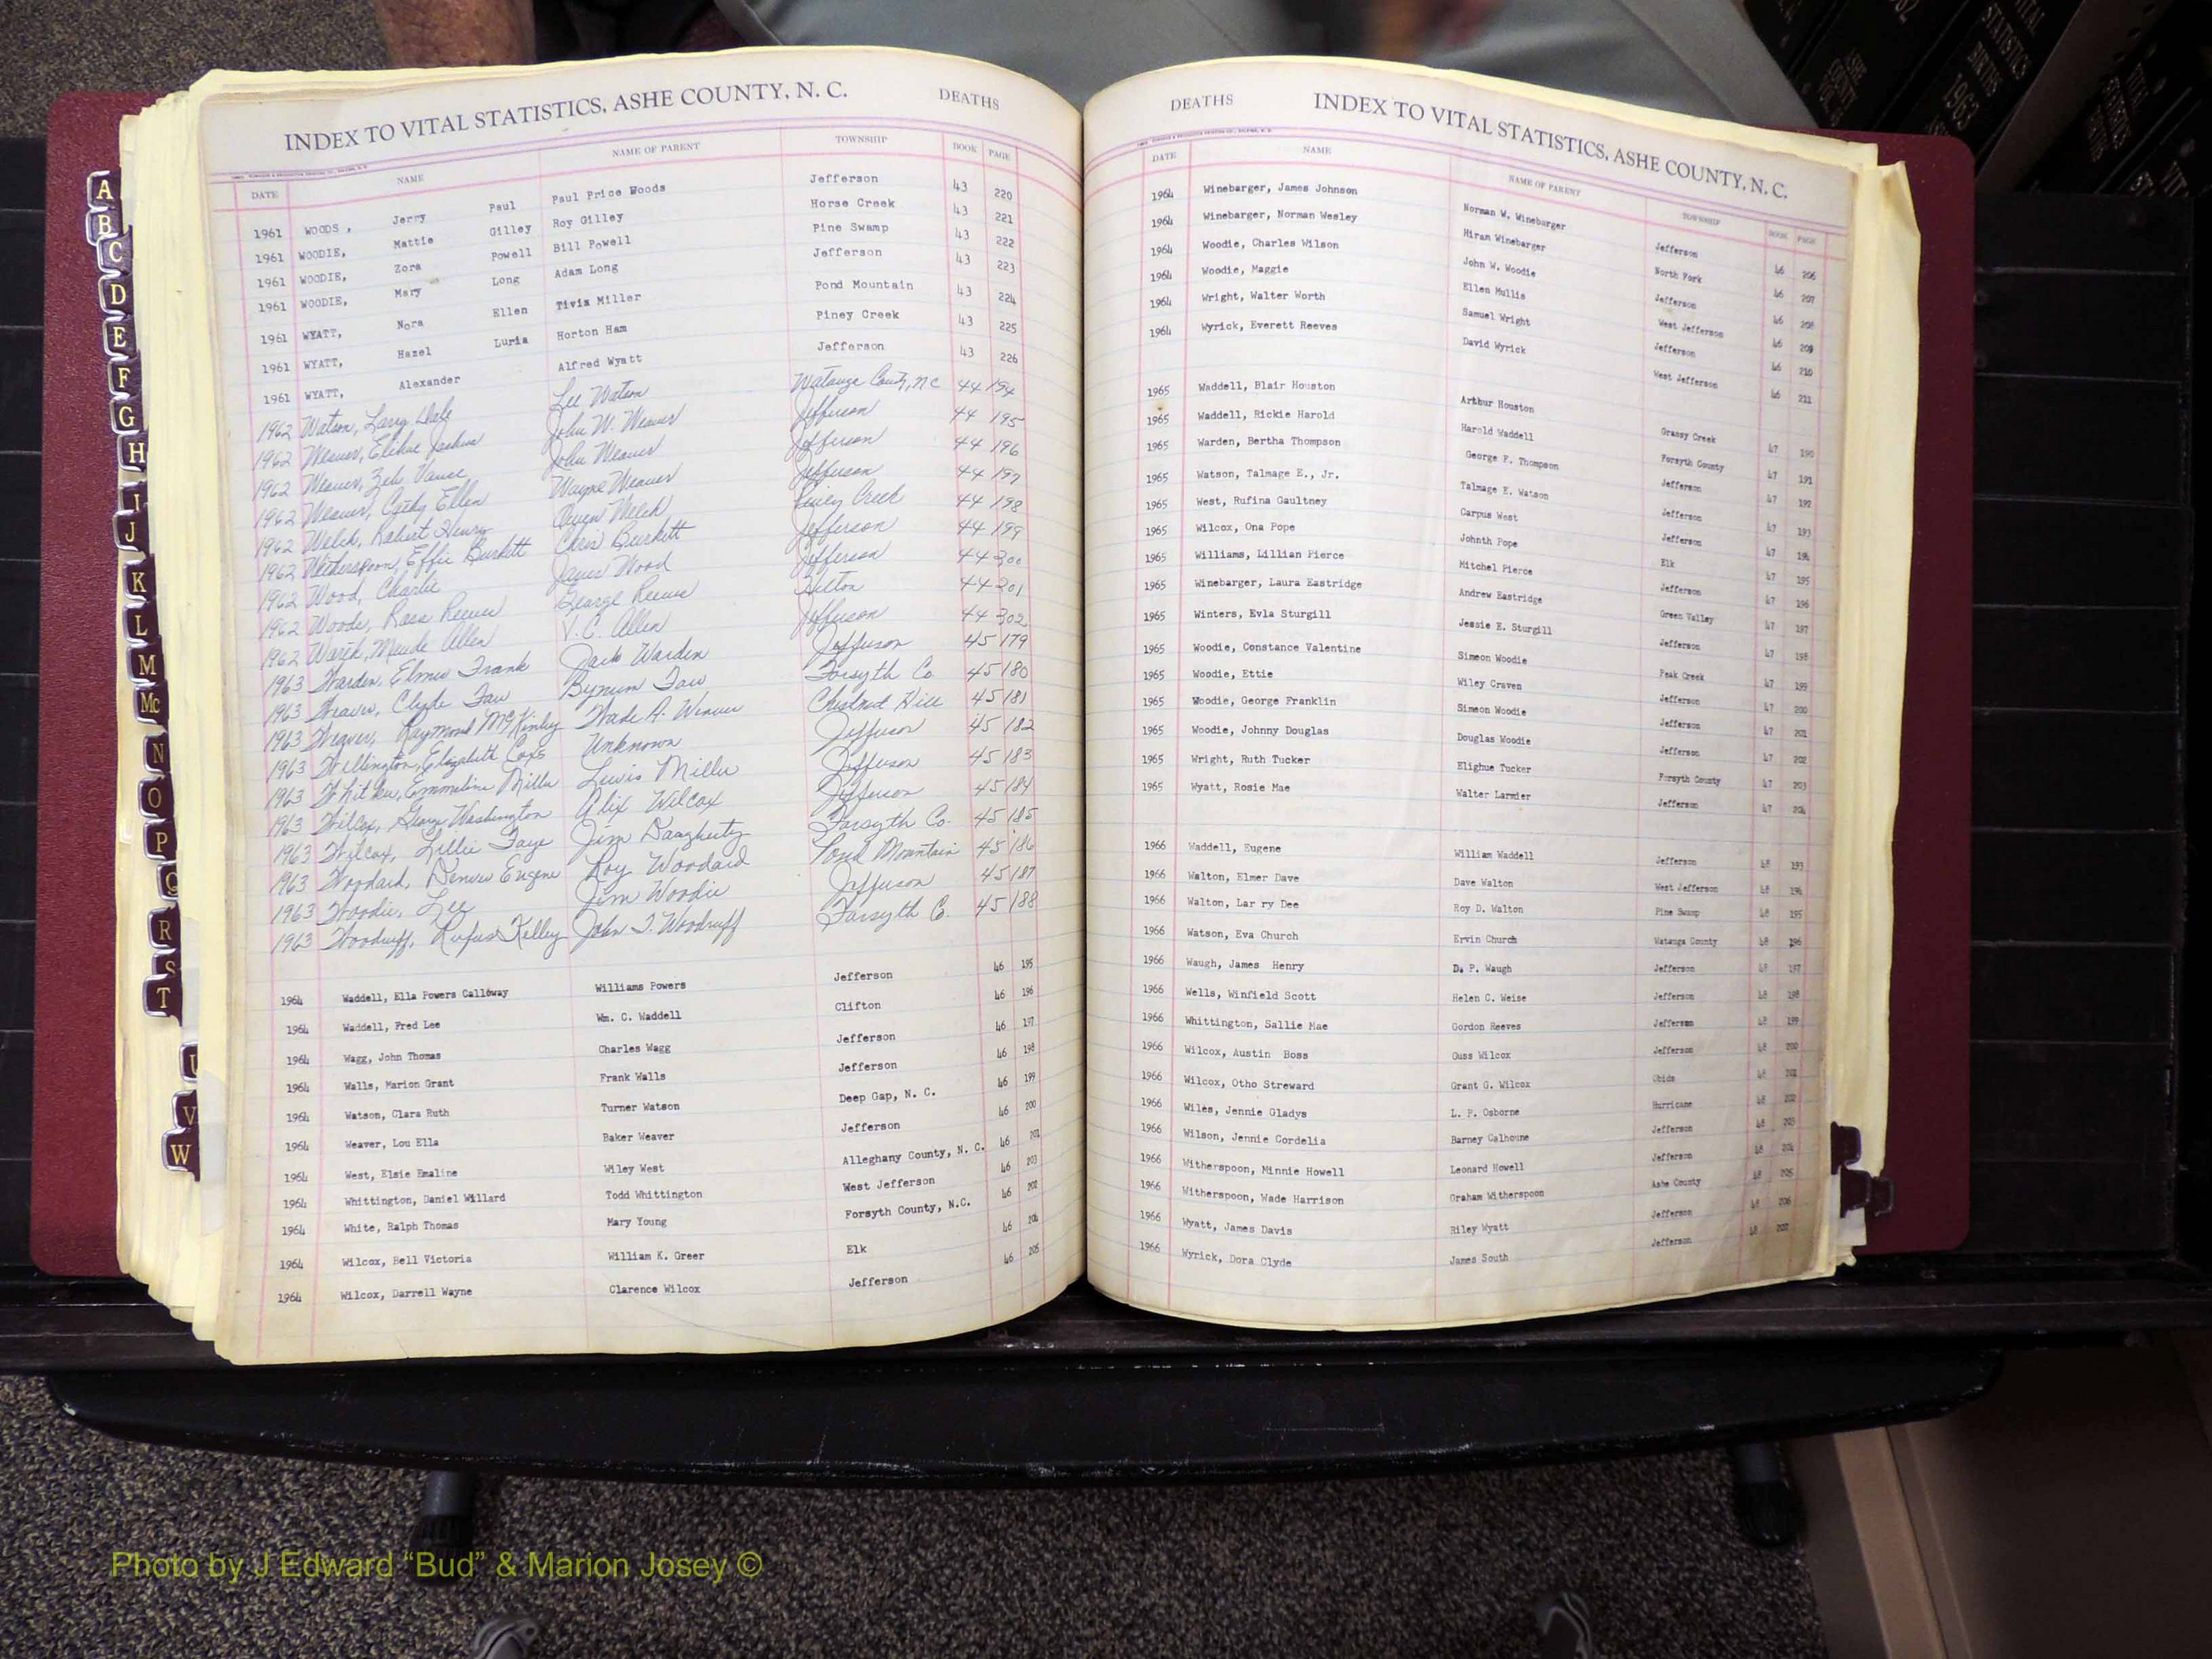 INDEX TO VITAL STATISTICS, ASHE COUNTY, N. C. DEATHS
DATE NAME NAME OF PARENT TOWNSHIP BOOK PAGE
1961 WOODS, Jerry Paul Paul Price Woods Jefferson 43 220
1961 WOODIE, Mattie Gilley Roy Gilley Horse Creek 43 221
1961 WOODIE, Zora Powell Bill Powell Pine Swamp 43 222
1961 WOODIE, Mary Long Adam Long Jefferson 43 223
1961 WYATT, Nora Ellen Tivis Miller Pond Mountain 43 224
1961 WYATT, Hazel Luria Horton Ham Piney Creek 43 225
1961 WYATT, Alexander Alfred Wyatt Jefferson 43 226
1962 Watson, Larry Dale Lee Watson Watauga County, NC 44 194
1962 Weaver, Elihue Joshua John W. Weaver Jefferson 44 195
1962 Weaver, Zeb Vance John Weaver Jefferson 44 196
1962 Weaver, Cathy Ellen Wayne Weaver Jefferson 44 197
1962 Welch, Robert Henry Owen Welch Piney Creek 44 198
1962 Witherspoon, Effie Burkett Chris Burkett Jefferson 44 199
1962 Wood, Charlie James Wood Jefferson 44 200
1962 Woods, Rosa Reeves George Reeves Helton 44 201
1962 Maude Allen V. C. Allen Jefferson 44 302
1963 Warden, Elmer Frank Jack Warden Jefferson 45 179
1963 Weaver, Clyde Faw Bynum Faw Forsyth Co. 45 180
1963 Weaver, Raymond McKinley Wade A. Weaver Chestnut Hill 45 181
1963 Wellington, Elizabeth Cox Unknown Jefferson 45 182
1963 Emmaline Miller Lewis Miller Jefferson 45 183
1963 Wilcox, George Washington Alix Wilcox Jefferson 45 184
1963 Wilcox, Lillie Faye Jim Daugherty Forsyth Co. 45 185
1963 Woodard, Denver Eugene Roy Woodard Pond Mountain 45 186
1963 Woodie, Lee Jim Woodie Jefferson 45 187
1963 Woodruff, Rufus Kelley John T. Woodruff Forsyth C. 45 188
1964 Waddell, Ella Powers Calloway Williams Powers Jefferson 46 195
1964 Waddell, Fred Lee Wm. C. Waddell Clifton 46 196
1964 Wagg, John Thomas Charles Wagg Jefferson 46 197
1964 Walls, Marion Grant Frank Walls Jefferson 46 198
1964 Watson, Clara Ruth Turner Watson Deep Gap, N. C. 46 199
1964 Weaver, Lou Ella Baker Weaver Jefferson 46 200
1964 West, Elsie Emaline Wiley West Alleghany County, N. C. 46 201
1964 Whittington, Daniel Willard Todd Whittington West Jefferson 46 203
1964 White, Ralph Thomas Mary Young Forsyth County, N.C. 46 202
1964 Wilcox, Bell Victoria William K. Greer Elk 46 204
1964 Wilcox, Darrell Wayne Clarence Wilcox Jefferson 46 205
DEATHS INDEX TO VITAL STATISTICS, ASHE COUNTY, N. C.
DATE NAME NAME OF PARENT TOWNSHIP BOOK PAGE
1964 Winebarger, James Johnson Norman W. Winebarger Jefferson 46 206
1964 Winebarger, Norman Wesley Hiram Winebarger North Fork 46 207
1964 Woodie, Charles Wilson John W. Woodie Jefferson 46 208
1964 Woodie, Maggie Ellen Mullis West Jefferson 46 209
1964 Wright, Walter Worth Samuel Wright Jefferson 46 210
1964 Wyrick, Everett Reeves David Wyrick West Jefferson 46 211
1965 Waddell, Blair Houston Arthur Houston Grassy Creek 47 190
1965 Waddell, Rickie Harold Harold Waddell Forsyth County 47 191
1965 Warden, Bertha Thompson George F. Thompson Jefferson 47 192
1965 Watson, Talmage E., Jr. Talmage E. Watson Jefferson 47 193
1965 West, Rufina Gaultney Carpus West Jefferson 47 194
1965 Wilcox, Ona Pope Johnth Pope Elk 47 195
1965 Williams, Lillian Pierce Mitchel Pierce Jefferson 47 196
1965 Winebarger, Laura Eastridge Andrew Eastridge Green Valley 47 197
1965 Winters, Evla Sturgill Jessie E. Sturgill Jefferson 47 198
1965 Woodie, Constance Valentine Simeon Woodie Peak Creek 47 199
1965 Woodie, Ettie Wiley Craven Jefferson 47 200
1965 Woodie, George Franklin Simeon Woodie Jefferson 47 201
1965 Woodie, Johnny Douglas Douglas Woodie Jefferson 47 202
1965 Wright, Ruth Tucker Elighue Tucker Forsyth County 47 203
1965 Wyatt, Rosie Mae Walter Larmier Jefferson 47 204
1966 Waddell, Eugene William Waddell Jefferson 48 193
1966 Walton, Elmer Dave Dave Walton West Jefferson 48 194
1966 Walton, Lar ry Dee Roy D. Walton Pine Swamp 48 195
1966 Watson, Eva Church Ervin Church Watauga County 48 196
1966 Waugh, James Henry D. P. Waugh Jefferson 48 197
1966 Wells, Winfield Scott Helen C. Weise Jefferson 48 198
1966 Whittington, Sallie Mae Gordon Reeves Jefferson 48 199
1966 Wilcox, Austin Boss Ouss Wilcox Jefferson 48 200
1966 Wilcox, Otho Streward Grant G. Wilcox Obids 48 201
1966 Wiles, Jennie Gladys L. P. Osborne Hurricane 48 202
1966 Wilson, Jennie Cordelia Barney Calhoune Jefferson 48 203
1966 Witherspoon, Minnie Howell Leonard Howell Jefferson 48 204
1966 Witherspoon, Wade Harrison Graham Witherspoon Ashe County 48 205
1966 Wyatt, James Davis Riley Wyatt Jefferson 48 206
1966 Wyrick, Dora Clyde James South Jefferson 48 207
A
B
C
D
E
F
G
H
I
J
K
L
M
Mc
N
O
P
Q
R
S
T
U
V
W
VITAL STATISTICS BIRTHS 1963
ASHE COUNTY
Photo by J Edward “Bud” & Marion Josey ©